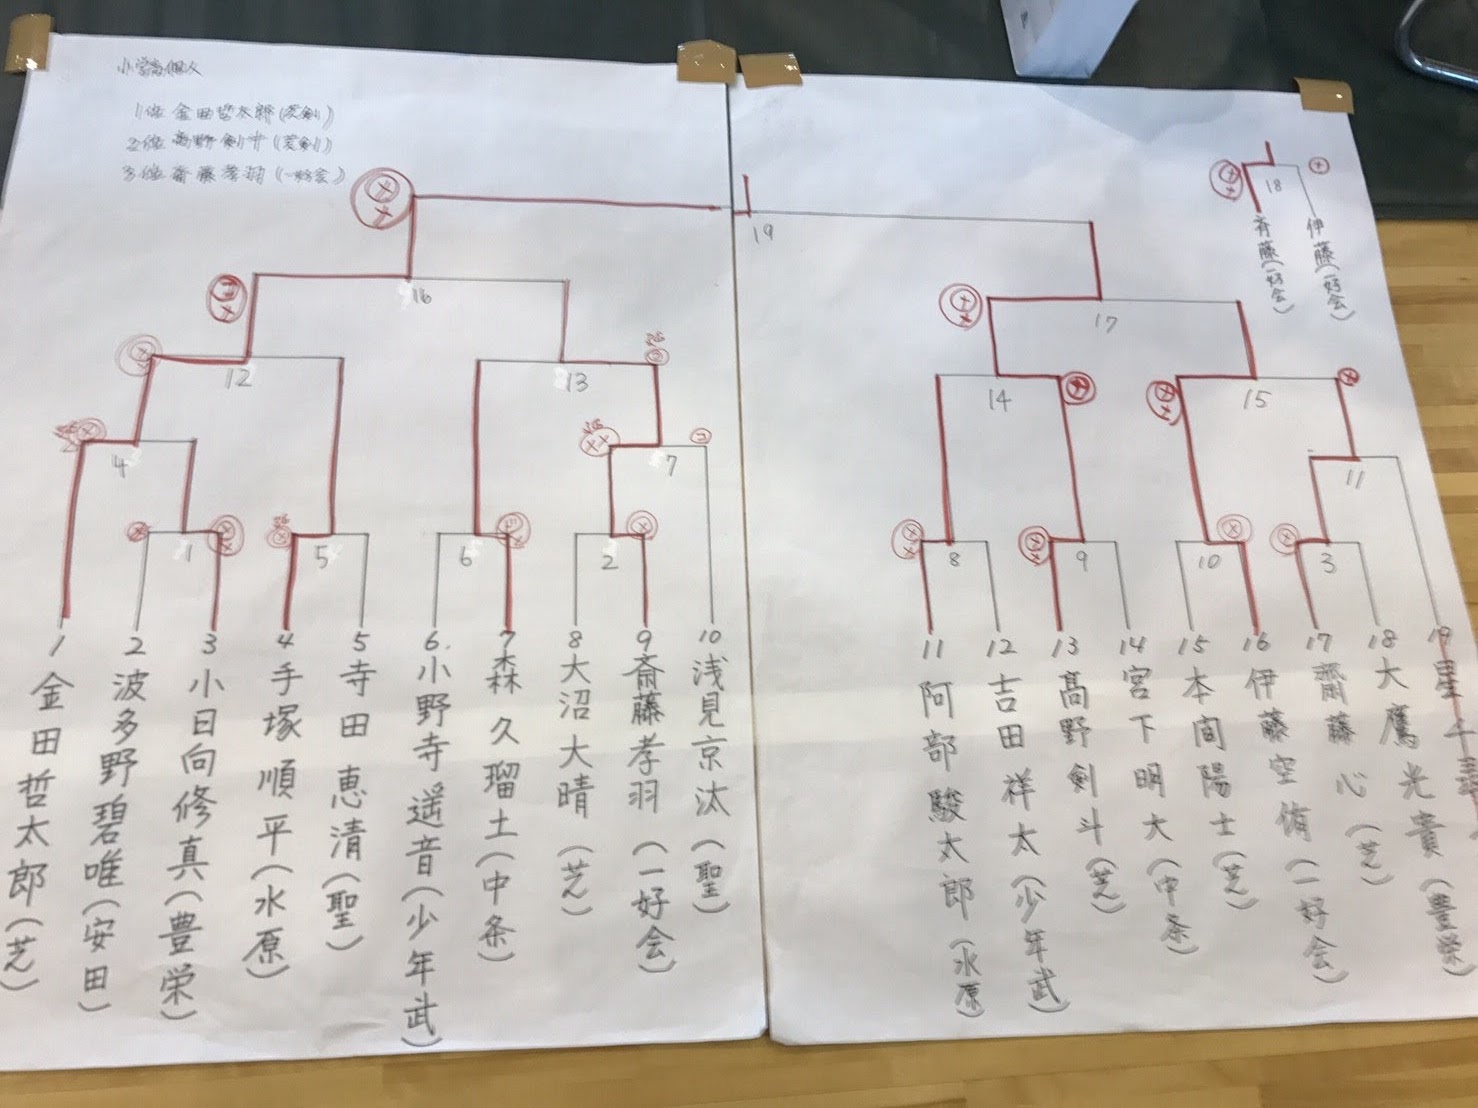 小学高個人
1位 金田哲太郎(芝剣)
2位 髙野剣斗(芝剣)
3位 齋藤孝羽(一好会)
19
18
斉藤(一好会)
伊藤(一好会)
16
17
12
13
14
15
4
7
11
1
5
6
2
8
9
10
3
1 金田哲太郎(芝)
2 波多野碧唯(安田)
3 小日向修真(豊栄)
4 手塚順平(水原)
5 寺田恵清(聖)
6 小野寺遥音(少年武)
7 森久瑠土(中条)
8 大沼大晴(芝)
9 斎藤孝羽(一好会)
10 浅見京汰(聖)
11 阿部駿太郎(水原)
12 吉田祥太(少年武)
13 髙野剣斗(芝)
14 宮下明大(中条)
15 本間陽士(芝)
16 伊藤空侑(一好会)
17 齋藤心(芝)
18 大鷹光貴(豊栄)
19 星千